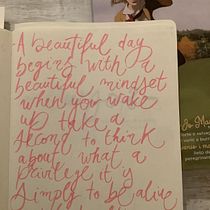 A beautiful day
begins with a
beautiful mindset
when you wake
up take a
second to think
about what a
privlege it is
simply to be alive